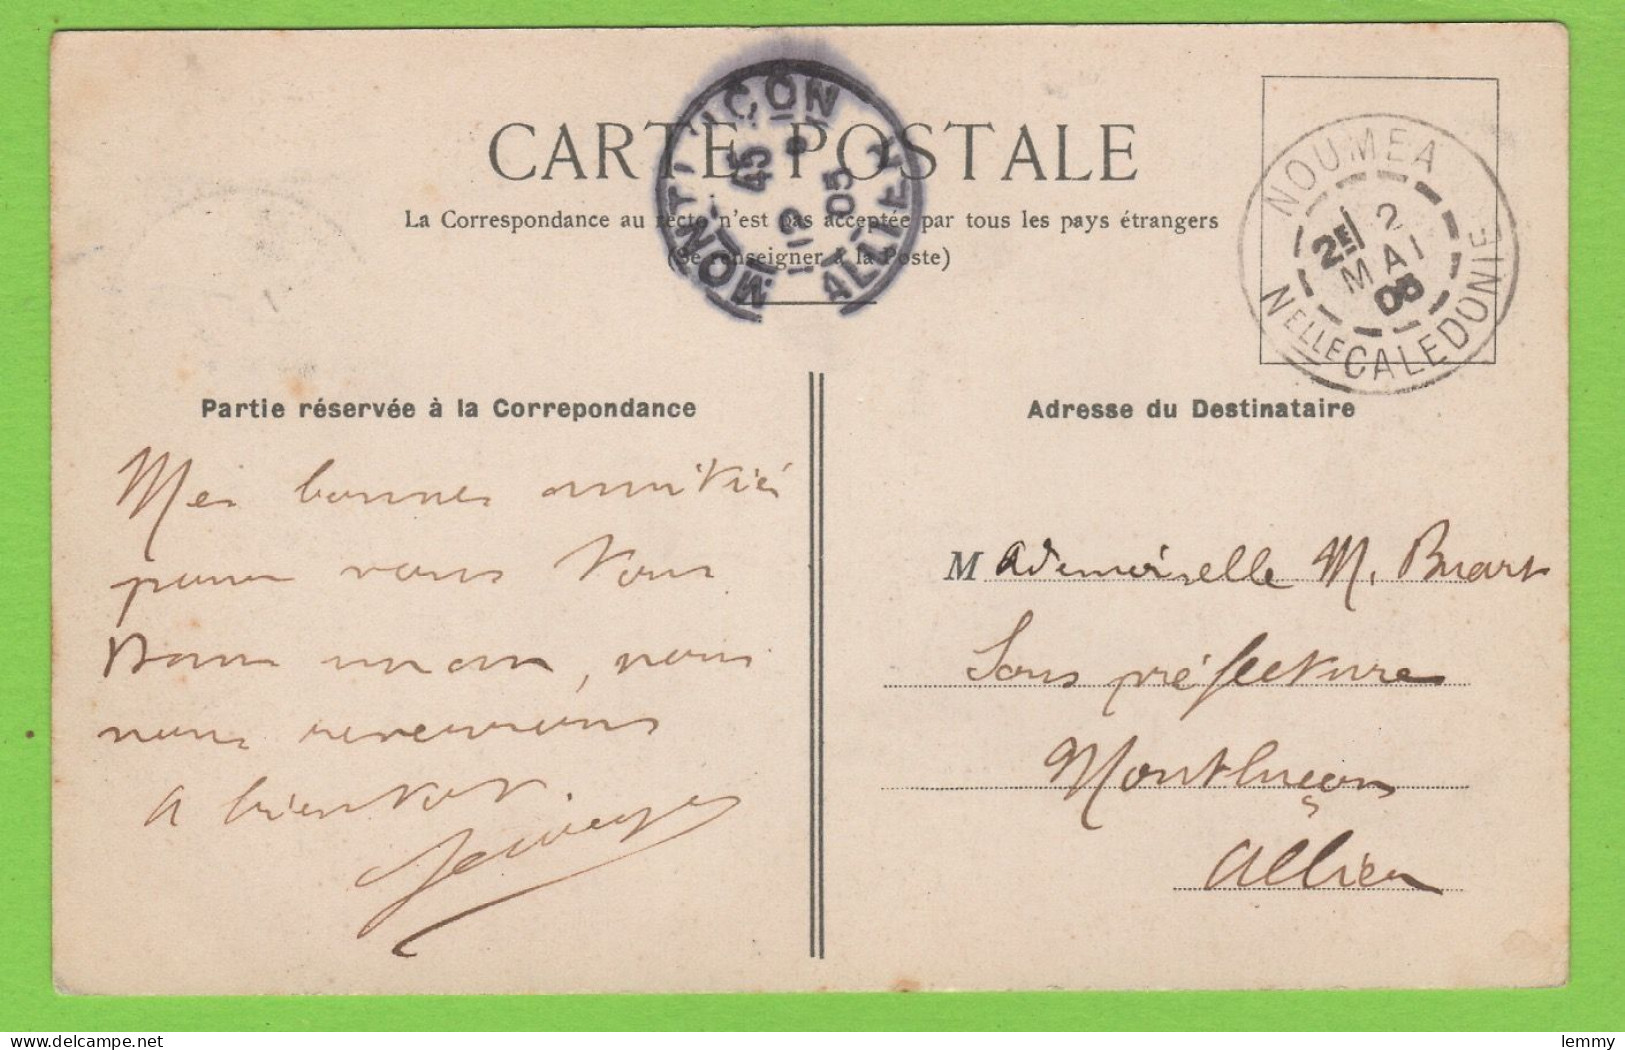 CARTE POSTALE
La Correspondance au recto n'est pas acceptée par tous les pays étrangers
(Se renseigner à la Poste)
MONTLUÇON
45
05
ALLIER
NOUMEA
2E 2
MAI
05
NELLE CALEDONIE
Partie réservée à la Correpondance
Mes bonnes amitiés
pour vous tous
Bonne maman, nous
nous reverrons
A bientôt.
Adresse du Destinataire
Mademoiselle M. Buart
Sous préfecture
Montluçon
Allier
delcampe.net
lemmy